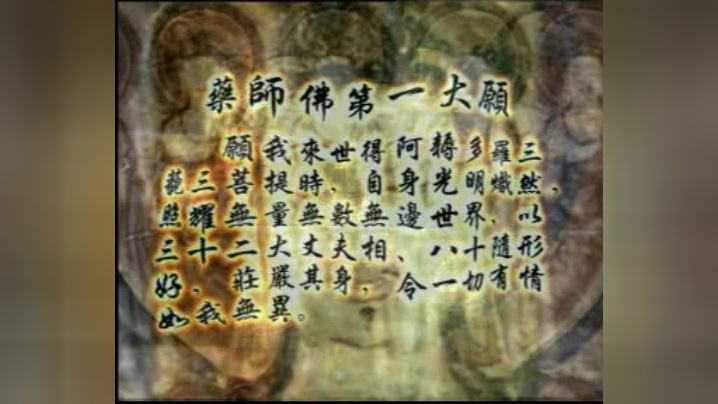 藥師佛第一大願
願我來世得阿耨多羅三
藐三菩提時，自身光明熾然，
照耀無量無數無邊世界，以
三十二大丈夫相、八十隨形
好，莊嚴其身，令一切有情
如我無異。